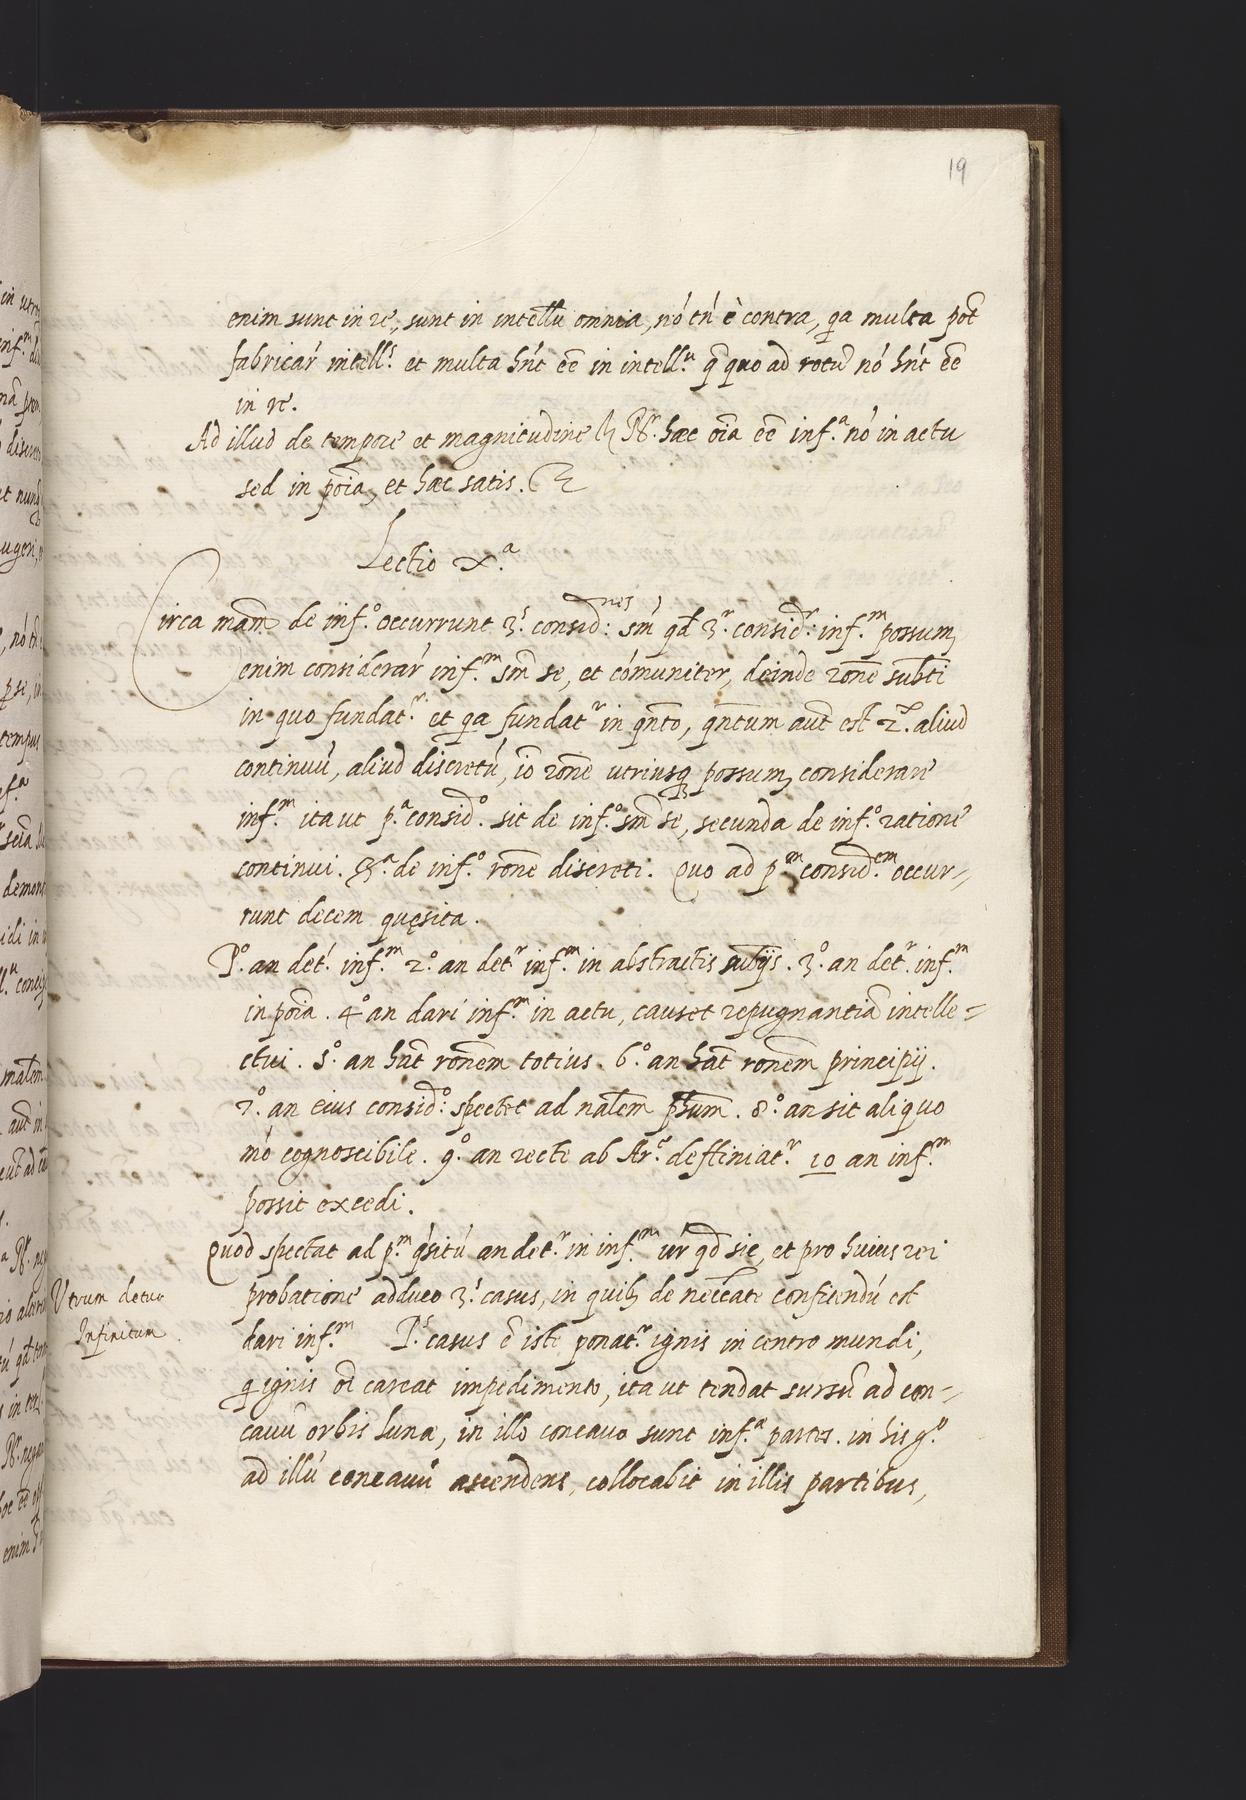 19
enim sunt in re, sunt in intellū omnia, nó tń è contra, qa multa pōt
fabricár intell.s et multa hńt ēē in intell.u q̄ quo ad totū nó hńt ēē
in re.
Ad illud de tempore et magnitudine Rr. hæc oīa ēē inf.a nó in actu
sed in poīa, et hæc satis.
Lectio X.a
Circa mam̄ de inf.o occurrunt 3.s consid:nes sḿ qđ 3.r consid:r inf.m possum9
enim considerár inf.m sm̄ se, et cómuniter, deinde rōne subt̄i
in quo fundat.r et qa fundat.r in qn̄to, qn̄tum aut̄ est 2.x aliud
continuū, aliud discretú, iō rōne utriusq; possum9 considerare
inf.m ita ut p.a consid.o sit de inf.o sm̄ se, secunda de inf.o ratione
continui. 3.a de inf.o rōne discreti. Quo ad p.m consid.em occur-
runt decem quęsita.
P.o an det.r inf.m 2.o an det.r inf.m in abstractis subt̄ijs. 3.o an det.r inf.m
in poīa. 4.o an dari inf.m in actu, causet repugnantiā intelle=
ctui. 5.o an hāt rōnem totius. 6.o an hāt rōnem principij.
7.o an eius consid.o spectet ad nālem phūm. 8.o an sit aliquo
mó cognoscibile. 9.o an recte ab Ar.e deffiniat.r 10 an inf.m
possit excedi.
Quod spectat ad p.m q́sitú an det.r in inf.m úr qđ sic, et pro huius rei
Utrum detur
Infinitum.
probatione adduco 3.s casus, in quib; de neccāte confitendú est
dari inf.m P.s casus ē iste ponat.r ignis in centro mundi,
q ignis oī careat impedimento, ita ut tendat sursū ad con-
cauū orbis lunæ, in illo concauo sunt inf.a partes. in his g.o
ad illú concauū ascendens, collocabit in illis partibus,